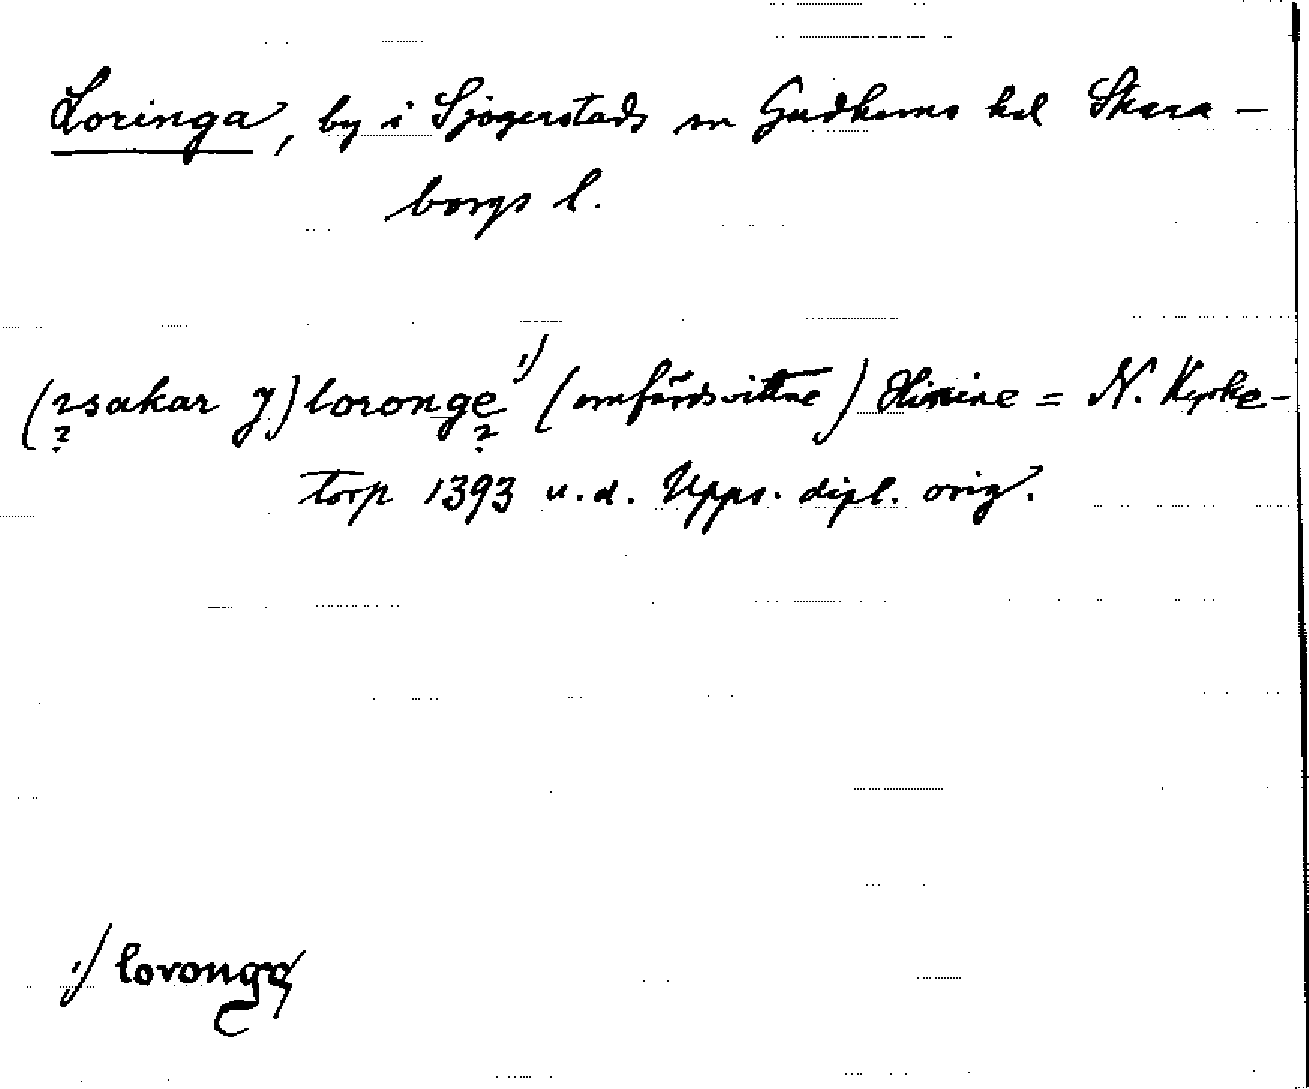 Loringa, by i Sjögerstads sn Gudhems hd Skara-
borgs l.
(isakar j) loronge 1) (omfärdsvittne) = N. Kyrke-
torp 1393 u.d. Upps. dipl. orig.
1) loronge